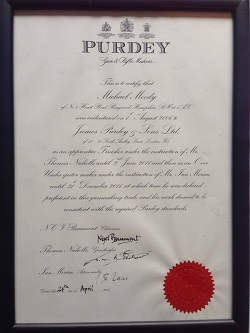 PURDEY
Gun & Rifle Makers
This is to certify that
Michael Moody
of No 4 Hook Road Ringwood Hampshire
was indentured on 1st August 2006 to
James Purdey & Sons Ltd.
of 57 - 58 South Audley Street London W1
as an apprentice Finisher under the instruction of Mr.
Thomas Nicholls until 2011 and then as an Over
Under under the instruction of Mr. Ian
until 2011 at which time he was deemed
proficient in this gunmaking trade and his work deemed to be
consistent with the required Purdey standards.
N C V Beaumont Chairman
Nigel Beaumont
Thomas Nicholls
Ian
Date 24th of April